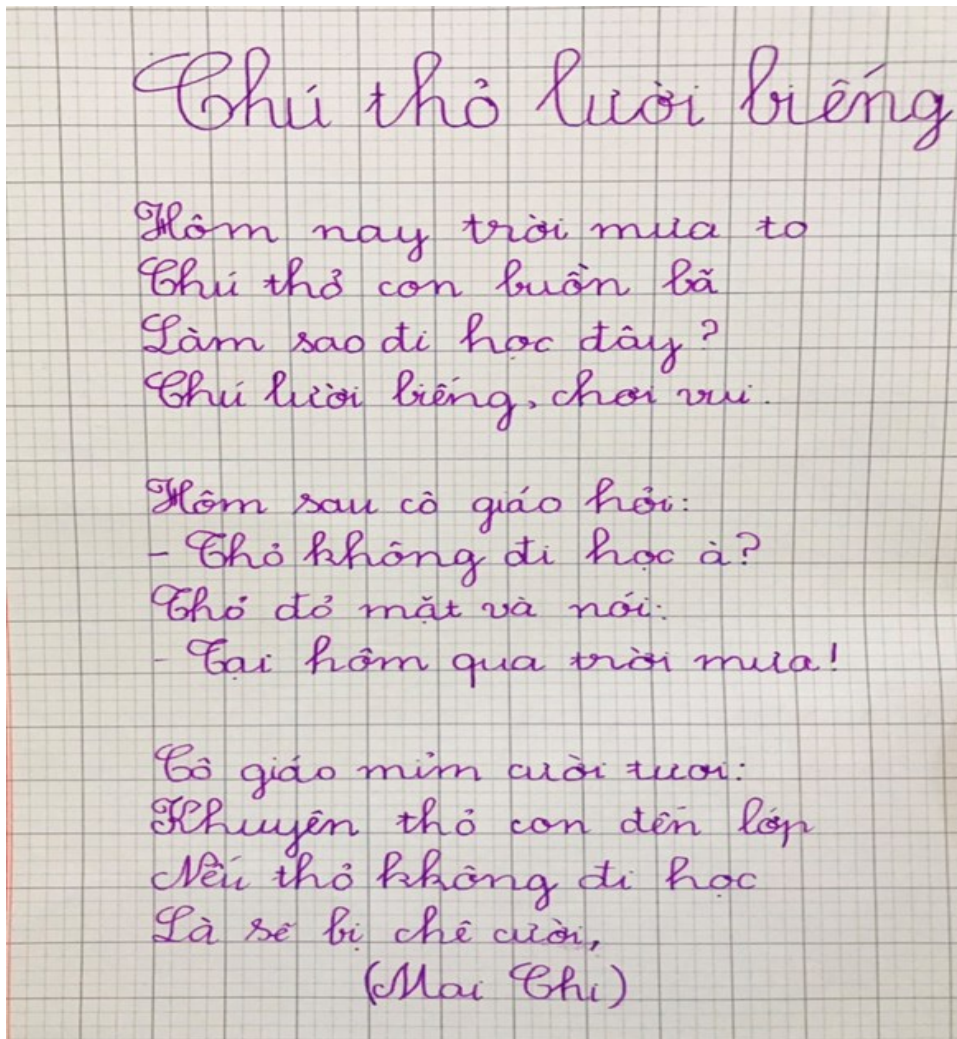 Chú thỏ lười biếng
Hôm nay trời mưa to
Chú thỏ con buồn bã
Làm sao đi học đây?
Chú lười biếng, chơi vui.
Hôm sau cô giáo hỏi:
- Thỏ không đi học à?
Thỏ đỏ mặt và nói:
- Tại hôm qua trời mưa!
Cô giáo mỉm cười tươi:
Khuyên thỏ con đến lớp
Nếu thỏ không đi học
Là sẽ bị chê cười,
(Mai Chi)